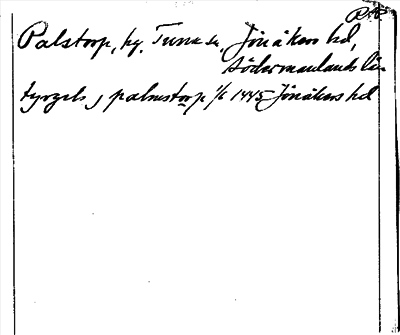 RAP
Palstorp, by, Tuna sn, Jönåkers hd,
Södermanlands län
tyrgels j palmstorp 1/6 1445 Jönåkers hd